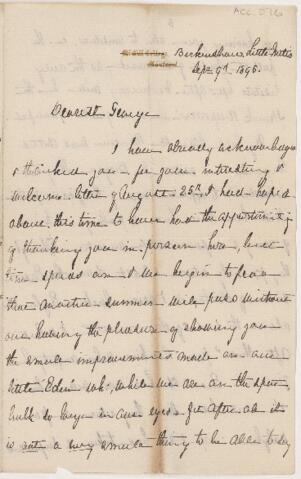 ACC. 0916
McGill College
Montreal
Birkenshaw, Little Metis
Sept 9th 1895.
Dearest George
I have already acknowledged
& thanked you for your interesting &
welcome letter of August 25th. I had hoped
about this time to have had the opportunity
of thanking you in person here, but
time speeds on & I begin to fear
that another summer will pass without
our having the pleasure of showing you
the small improvements made on our
little Eden wh. while we are on the spot
bulk so large in our eyes. Yet after all it
is not a very small thing to be able to say